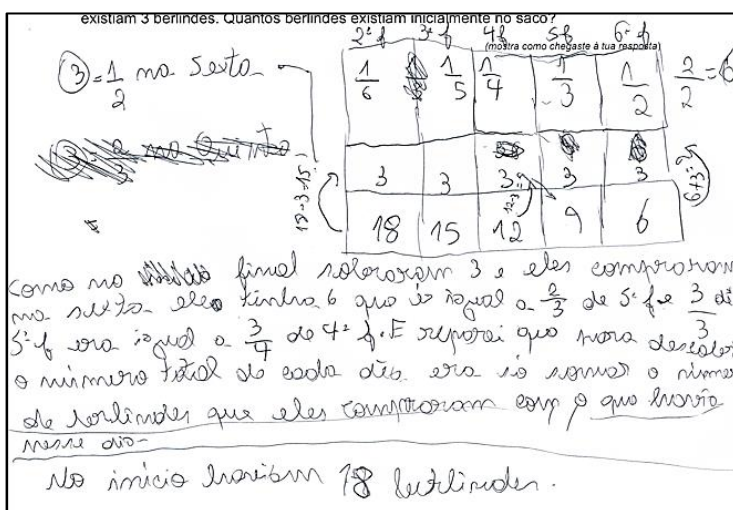 existiam 3 berlindes. Quantos berlindes existiam inicialmente no saco?
(mostra como chegaste à tua resposta)
2ª f 3ª f 4ª f 5ª f 6ª f
3 = 1/2 na sexta
1/6 1/5 1/4 1/3 1/2 2/2 = 6
3 3 3 3 3
18 15 12 9 6
6+3=9
como no final sobraram 3 e eles compraram
na sexta eles tinha 6 que é igual a 2/3 de 5ª f e 3/3 di
5ª f era igual a 3/4 de 4ª f. E reparei que para descober
o número total de cada dia era só somar o núme
de berlindes que eles compraram com o que havia
nesse dia
No início haviam 18 berlindes.